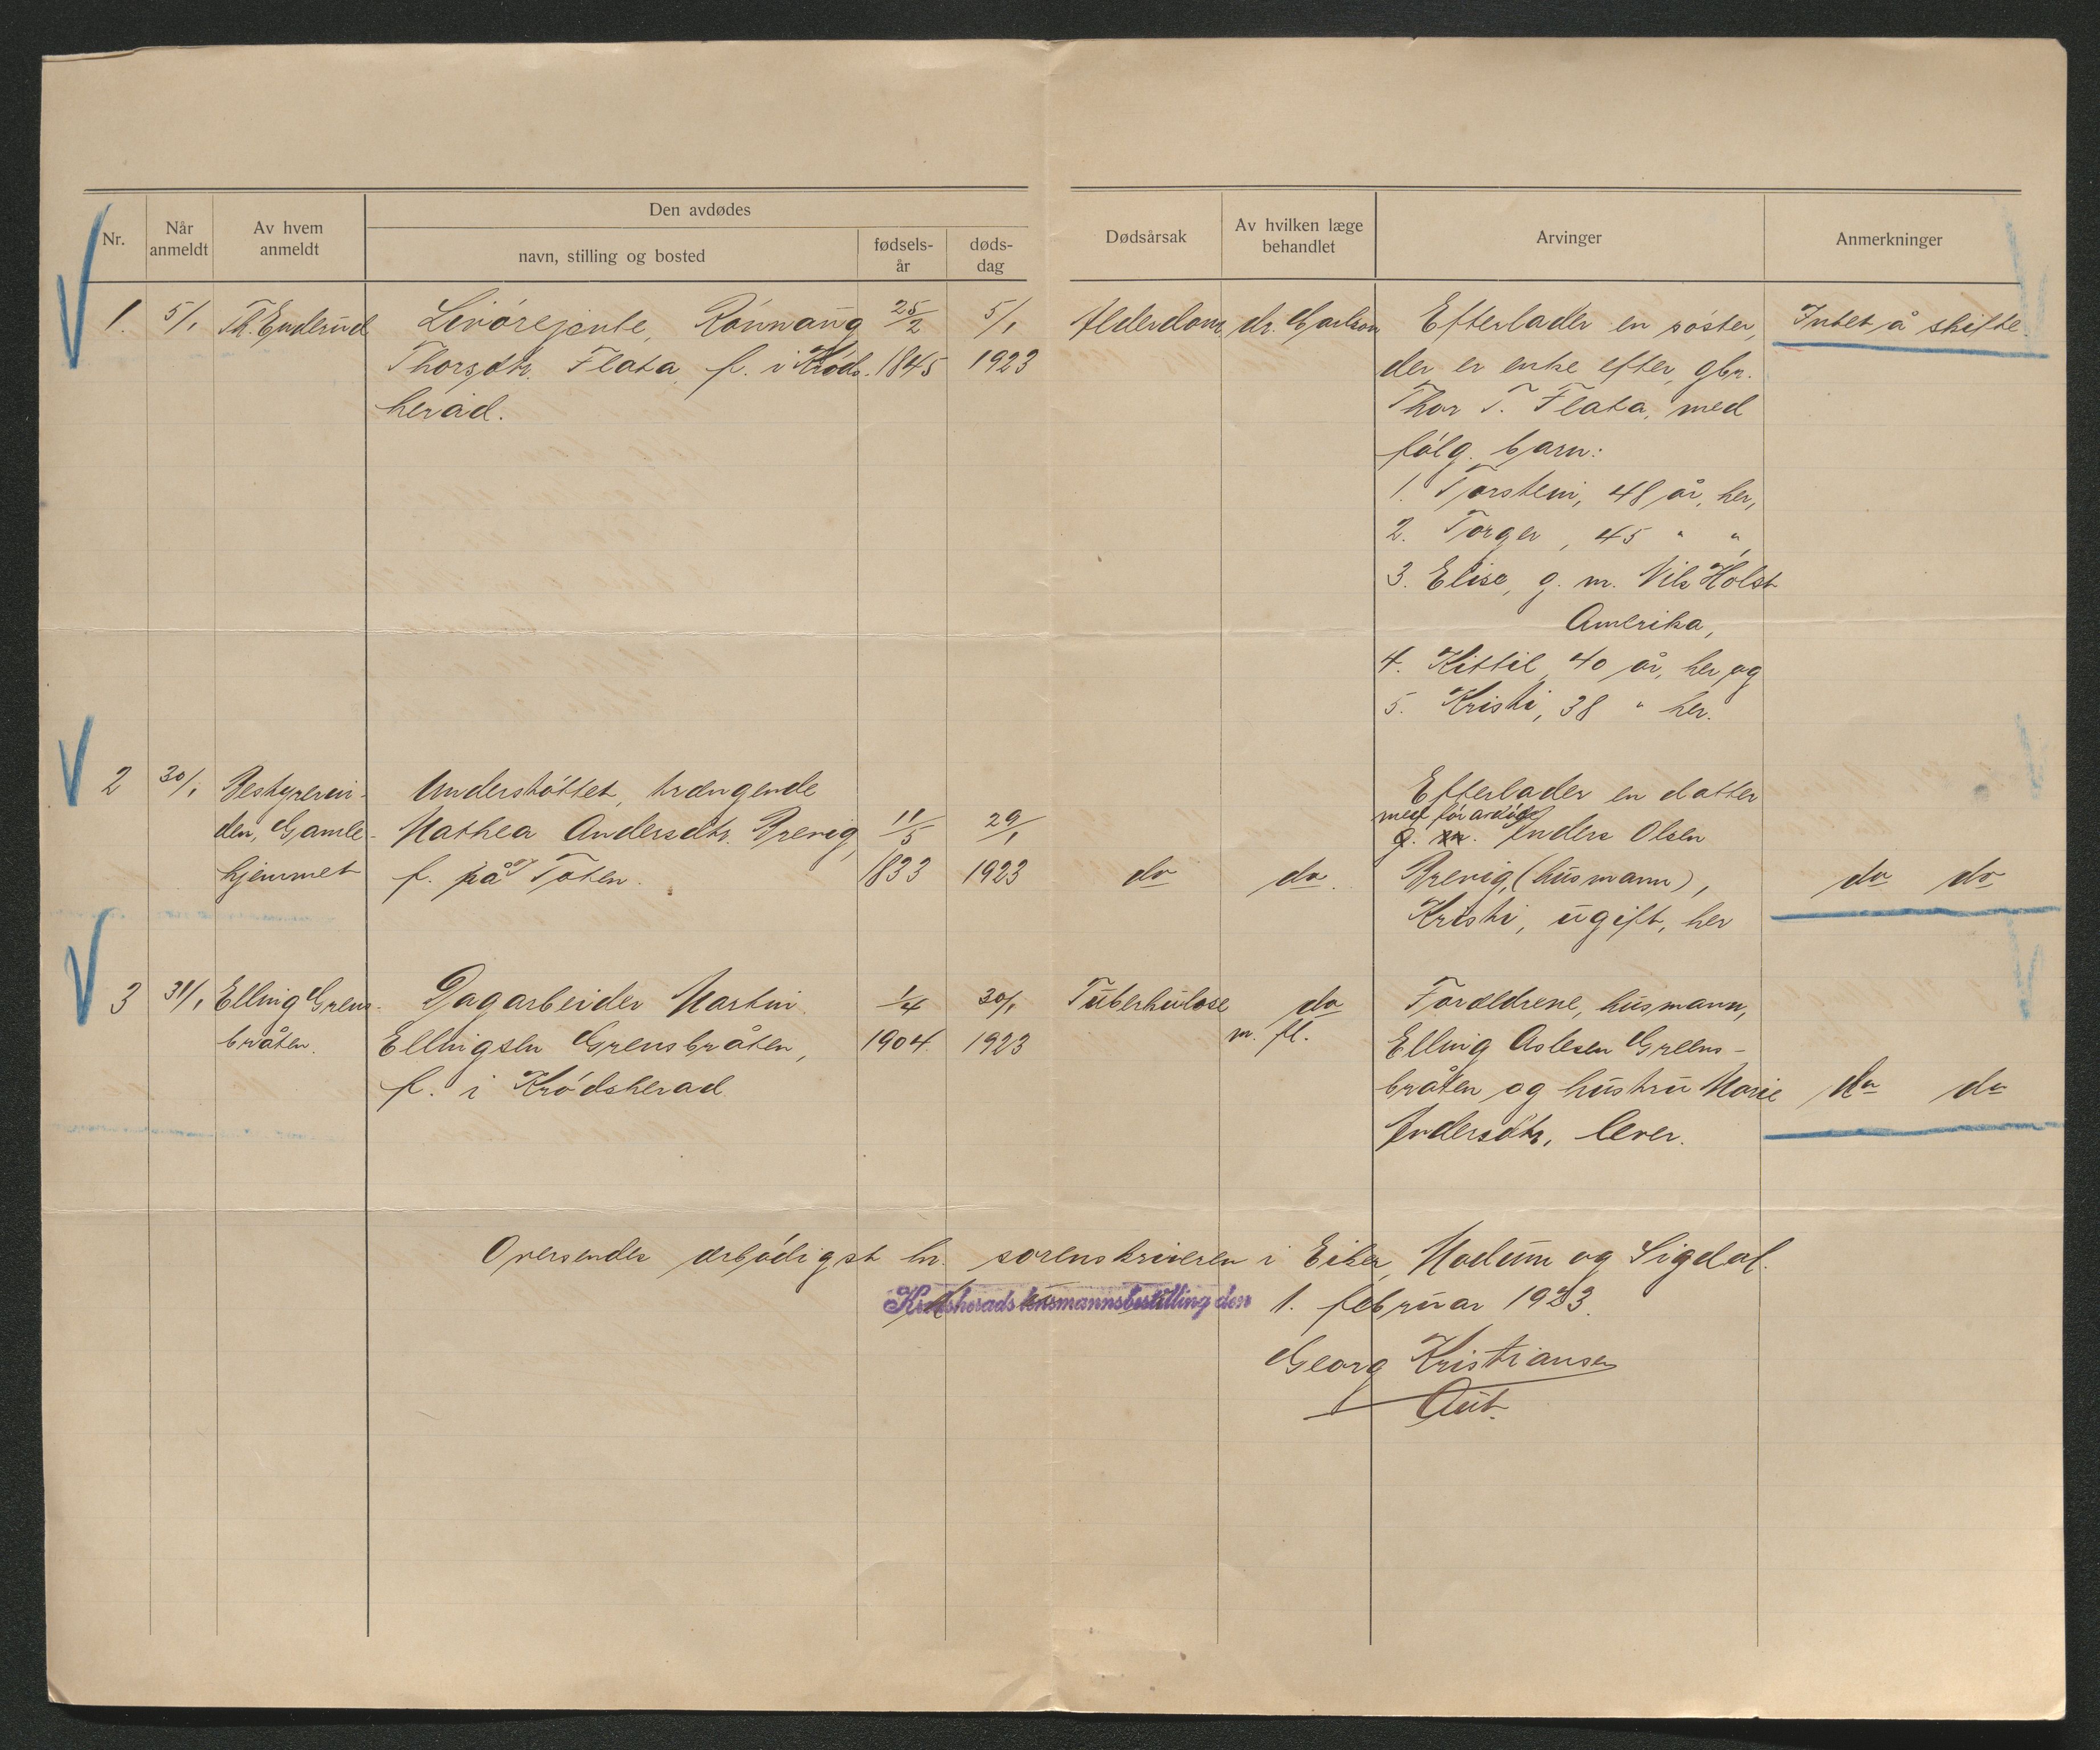 Nr.
Når anmeldt
Av hvem anmeldt
Den avdødes
navn, stilling og bosted
fødsels-år
døds-dag
Dødsårsak
Av hvilken læge behandlet
Arvinger
Anmerkninger
1. 5/1 Th. Enderud
Livörejente, Rönnaug
Thorsdtr. Flata, f. i Kröds-
herad.
25/2
1845
5/1
1923
Alderdom dr. Carlson
Efterlader en söster,
der er enke efter gbr.
Thor T. Flata, med
fölg. barn:
1. Torstein, 48 år, her,
2. Torger, 45 " "
3. Elise, g. m. Nils Holst
Amerika,
4. Kittil 40 år, her og
5. Kristi, 38 " her.
Intet å skifte.
2 30/1 Bestyrerin-
den, Gamle-
hjemmet
Understöttet, trængende
Mathea Andersdtr. Brevig,
f. på Toten.
11/5
1833
29/1
1923
do do.
Efterlader en datter
med før avdöde
g. m. Anders Olsen
Brevig, (husmann),
Kristi, ugift, her
do do
3 31/1 Elling Grens-
bråten.
Dagarbeider Martin
Ellingsen Grensbråten,
f. i Krödsherad
1/4
1904
30/1
1923
Tuberkulose do
m. fl.
Forældrene, husmann,
Elling Aslesen Greens-
bråten og hustru Marie
Andersdtr, lever.
do do
Oversendes ærbödigst hr. sorenskriveren i Eiker, Modum og Sigdal.
Krødsherads lensmannsbestilling den 1. februar 1923.
Georg Kristiansen
Aut.